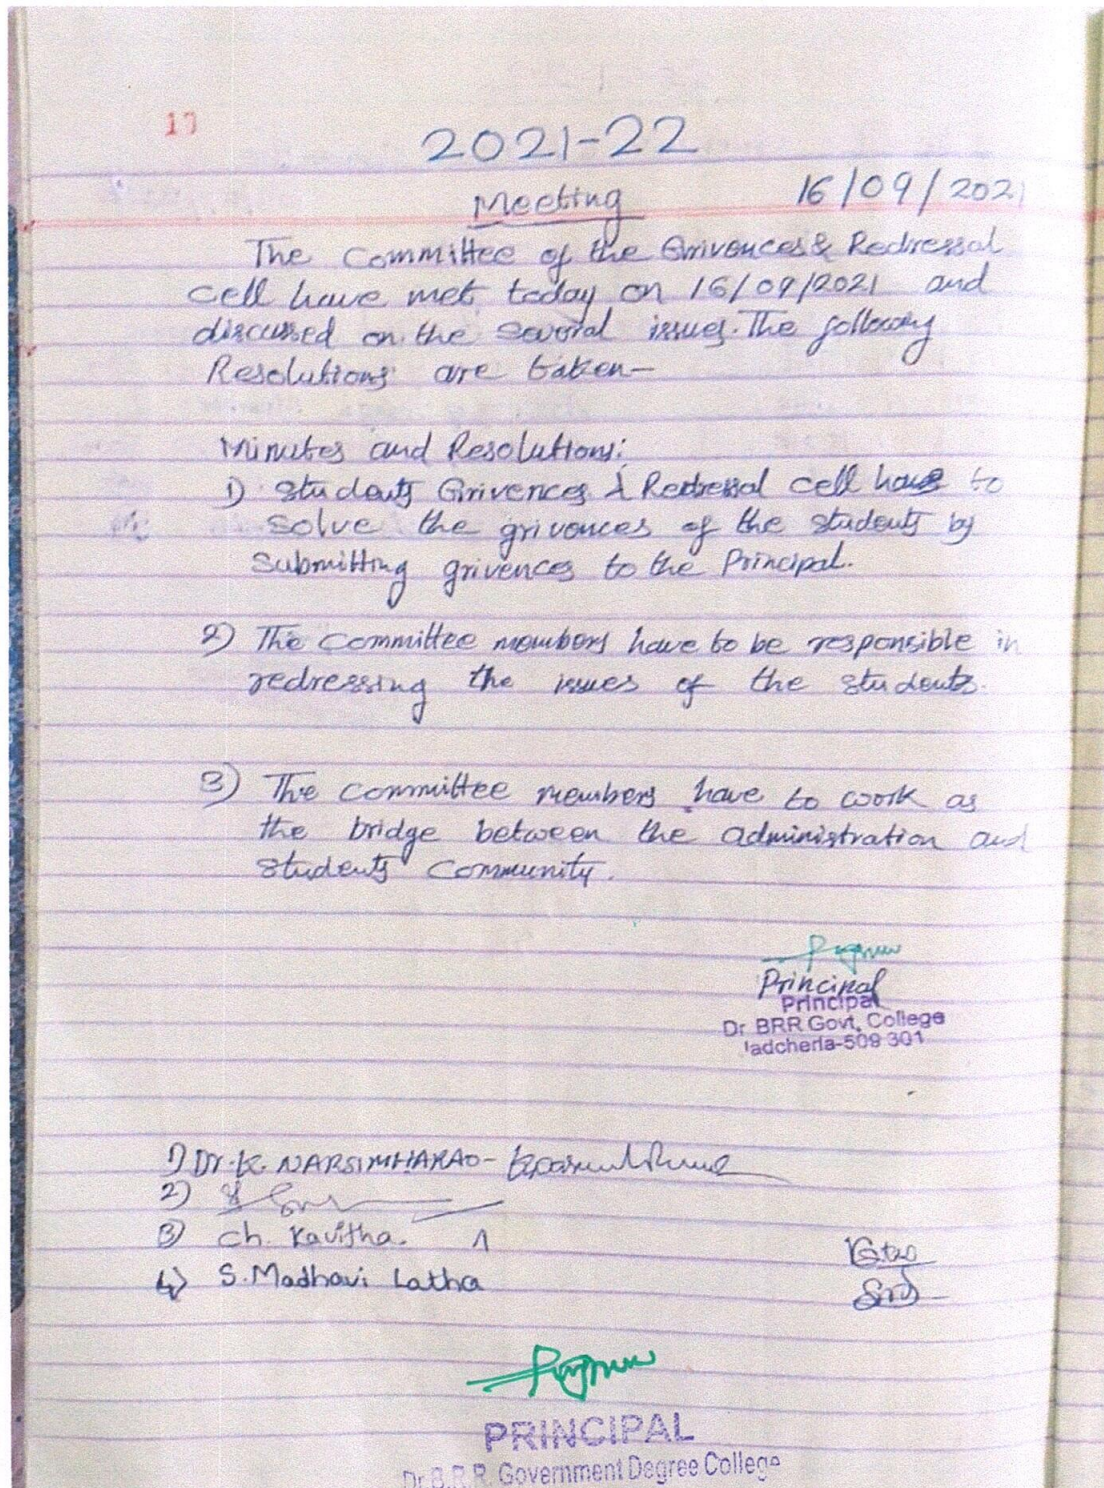 17
2021-22
Meeting 16/09/2021
The Committee of the Grivences & Redressal
cell have met today on 16/09/2021 and
discussed on the several issues. The following
Resolutions are taken-
Minutes and Resolutions:
1) Students Grivences & Redressal cell have to
solve the grivences of the students by
Submitting grivences to the Principal.
2) The committee members have to be responsible in
redressing the issues of the students.
3) The committee members have to work as
the bridge between the administration and
students community.
Principal
Principal
Dr BRR Govt. College
adcherla-509 301
1) Dr. K. NARSIMHARAO-
2)
3) Ch. Kavitha.
4) S. Madhavi Latha
PRINCIPAL
Dr B.R.R. Government Degree College